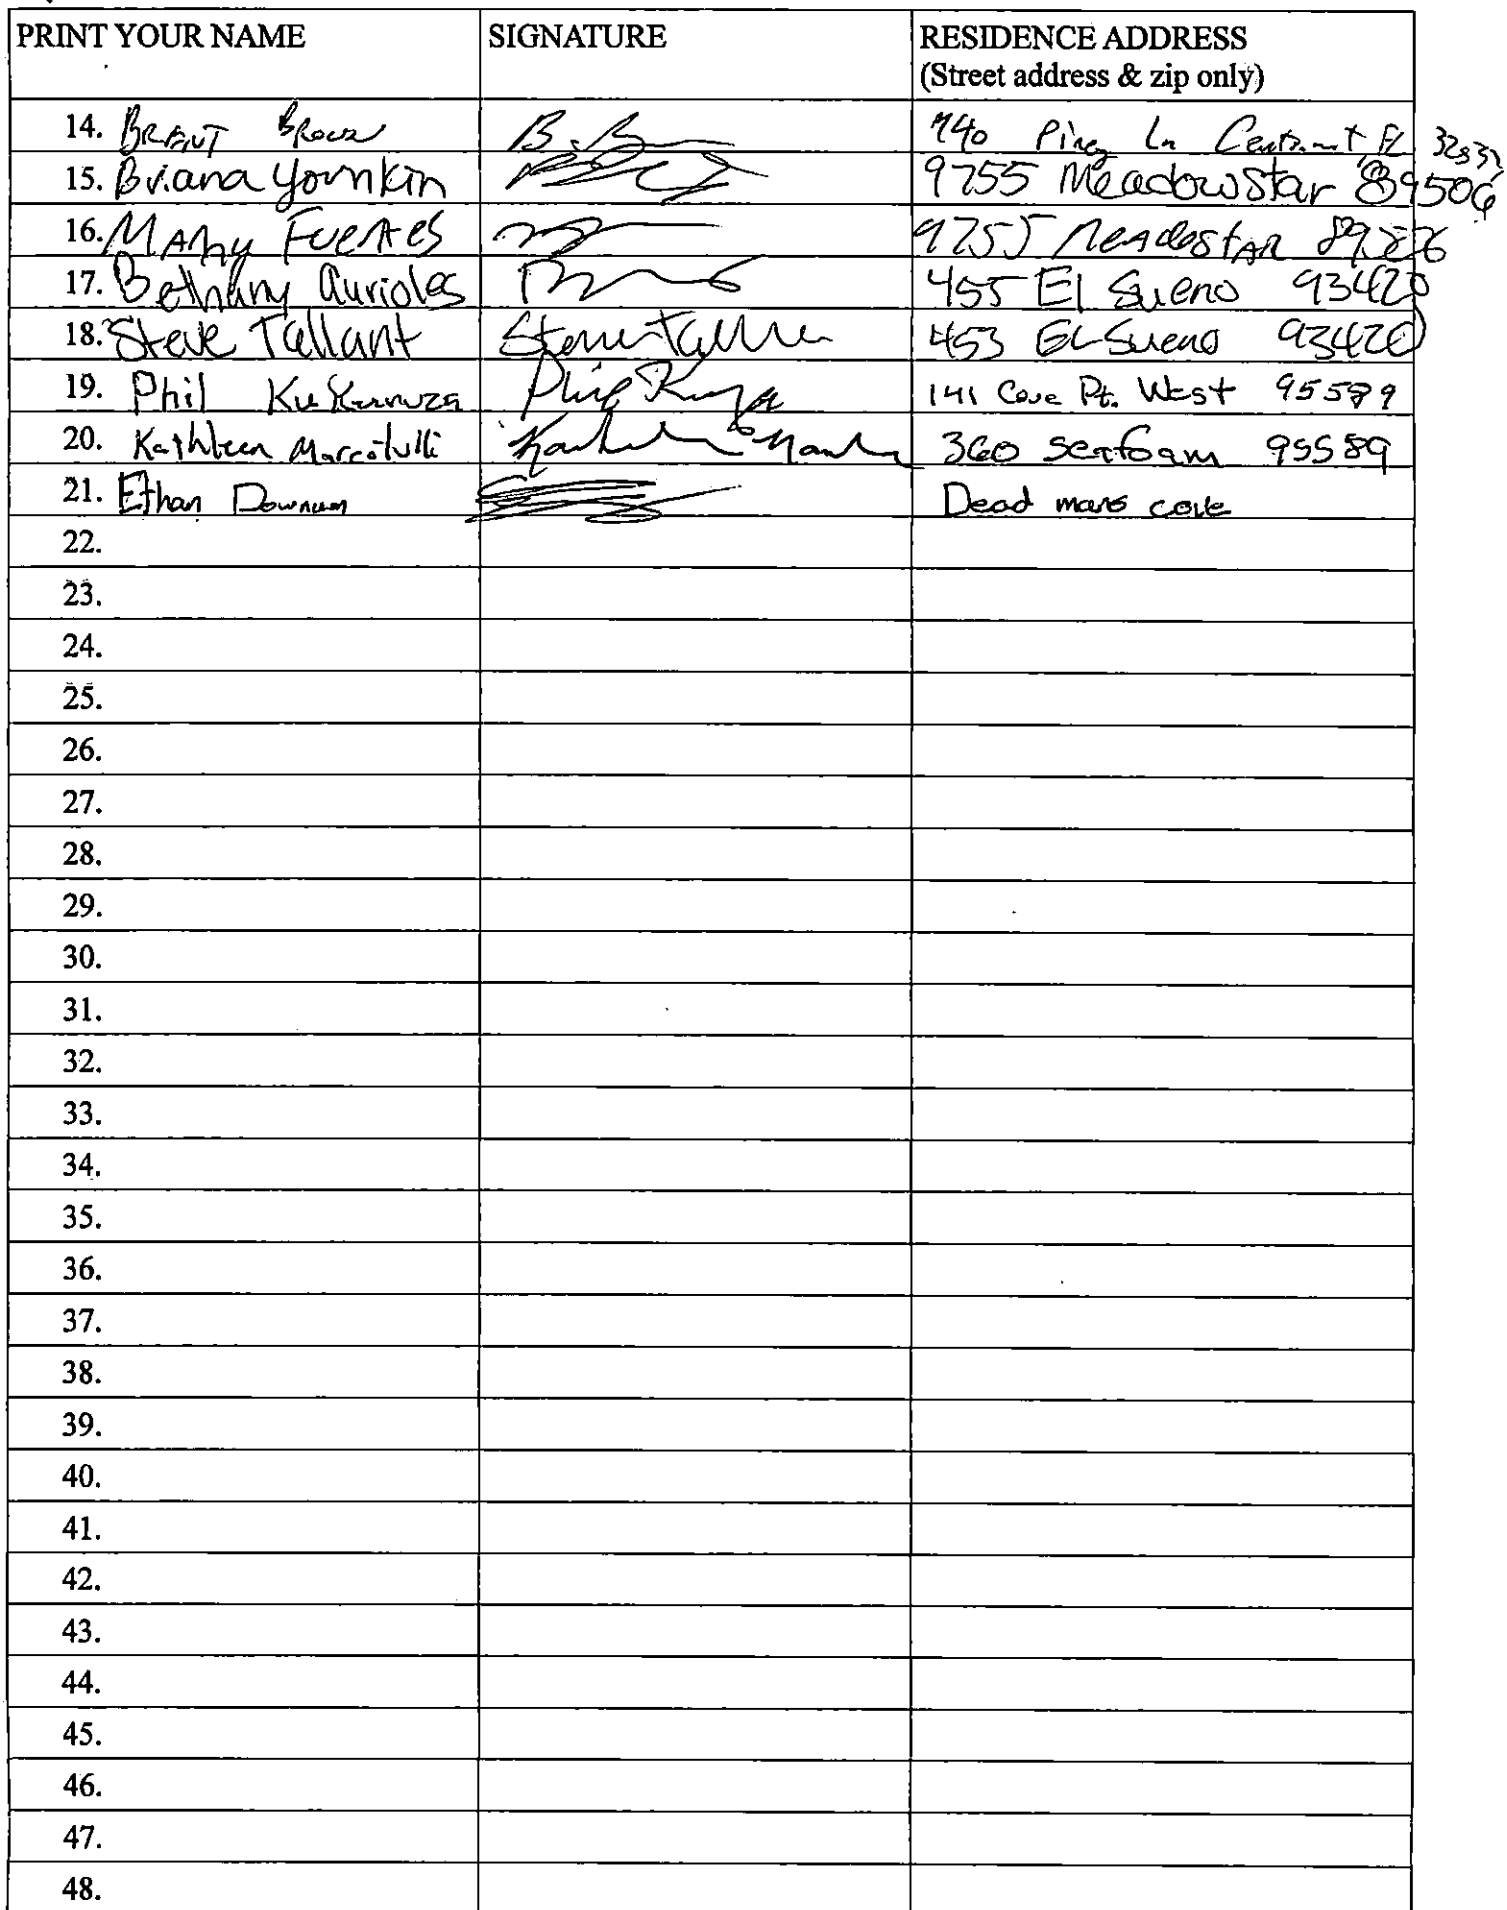 PRINT YOUR NAME SIGNATURE RESIDENCE ADDRESS
(Street address & zip only)
14. Brent Brown B. B 740 Piney Ln FL
15. Briana Yornkin 9755 Meadowstar 89506
16. Many Fuentes 9755
17. Bethany Aurioles 455 El Sueno 93420
18. Steve Tallant Steve Talln 453 El Sueno 93420
19. Phil 141 Cove Pt. West 95589
20. Kathleen Marcotulli 360 Seafoam 95589
21. Ethan Downum Dead mans cove
22.
23.
24.
25.
26.
27.
28.
29.
30.
31.
32.
33.
34.
35.
36.
37.
38.
39.
40.
41.
42.
43.
44.
45.
46.
47.
48.